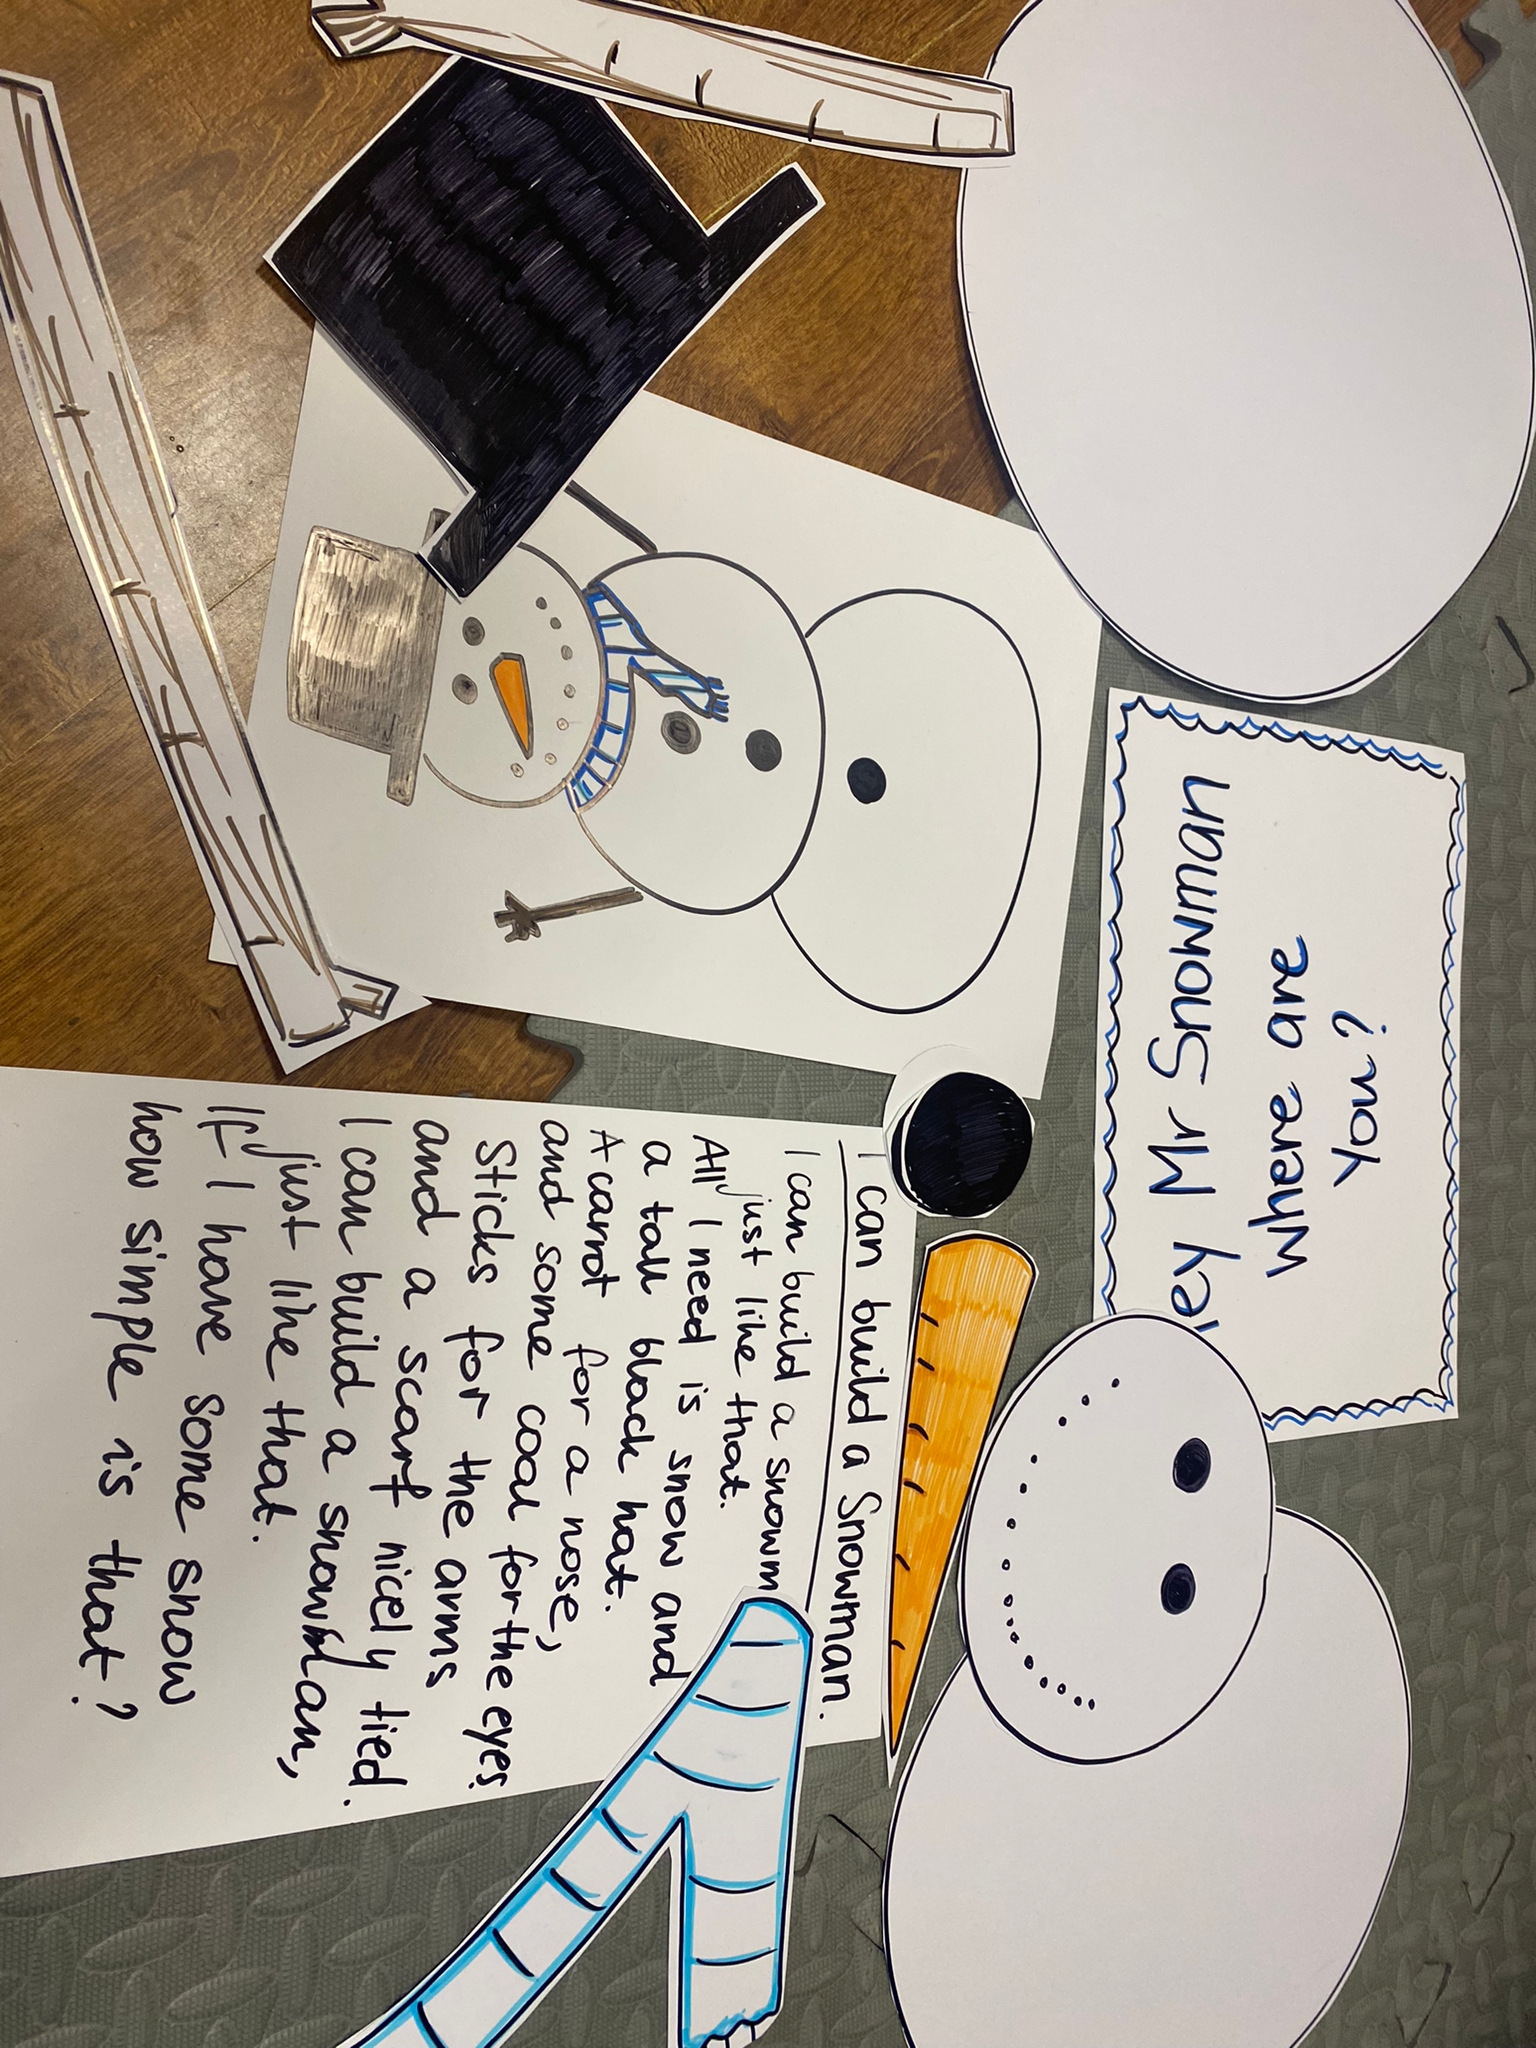 ey Mr Snowman
Where are
You?
I can build a Snowman.
I can build a snowm
just like that.
All I need is snow and
a tall black hat.
A carrot for a nose,
and some coal for the eyes
Sticks for the arms
and a scarf nicely tied.
I can build a snowman,
just like that.
If I have some snow
how simple is that?